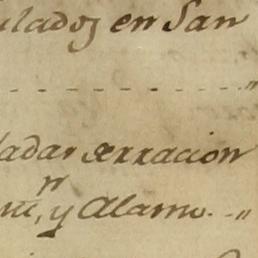 ulados en San
- - - - - - - - - - - - "
ladar serracion
y Alamo. - "